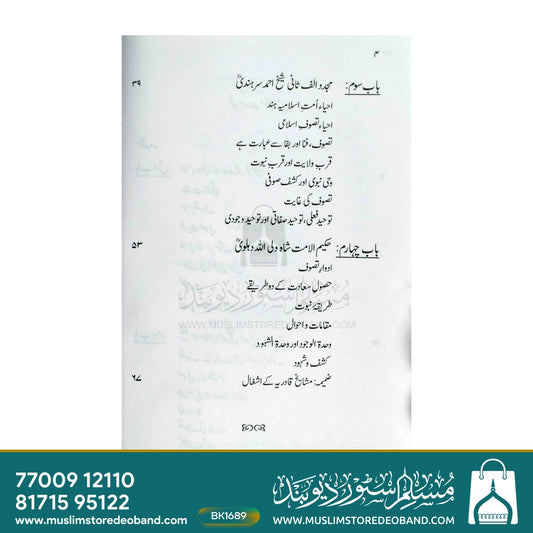 ۴
باب سوم: مجدد الف ثانی شیخ احمد سرہندیؒ ۳۹
احیاء اُمتِ اسلامیہ ہند
احیاء تصوفِ اسلامی
تصوف، فنا اور بقا سے عبارت ہے
قربِ ولایت اور قربِ نبوت
وحی نبوی اور کشف صوفی
تصوف کی غایت
توحید فعلی، توحید صفاتی اور توحید وجودی
باب چہارم: حکیم الامت شاہ ولی اللہ دہلویؒ ۵۳
ادوارِ تصوف
حصولِ سعادت کے دو طریقے
طریقۂ نبوت
مقامات و احوال
وحدۃ الوجود اور وحدۃ الشہود
کشف و شہود
ضمیمہ: مشایخ قادریہ کے اشغال ۶۷
مسلم اسٹور دیوبند
WWW.MUSLIMSTOREDEOBAND.COM
77009 12110
81715 95122
www.muslimstoredeoband.com
BK1689
مسلم اسٹور دیوبند
WWW.MUSLIMSTOREDEOBAND.COM